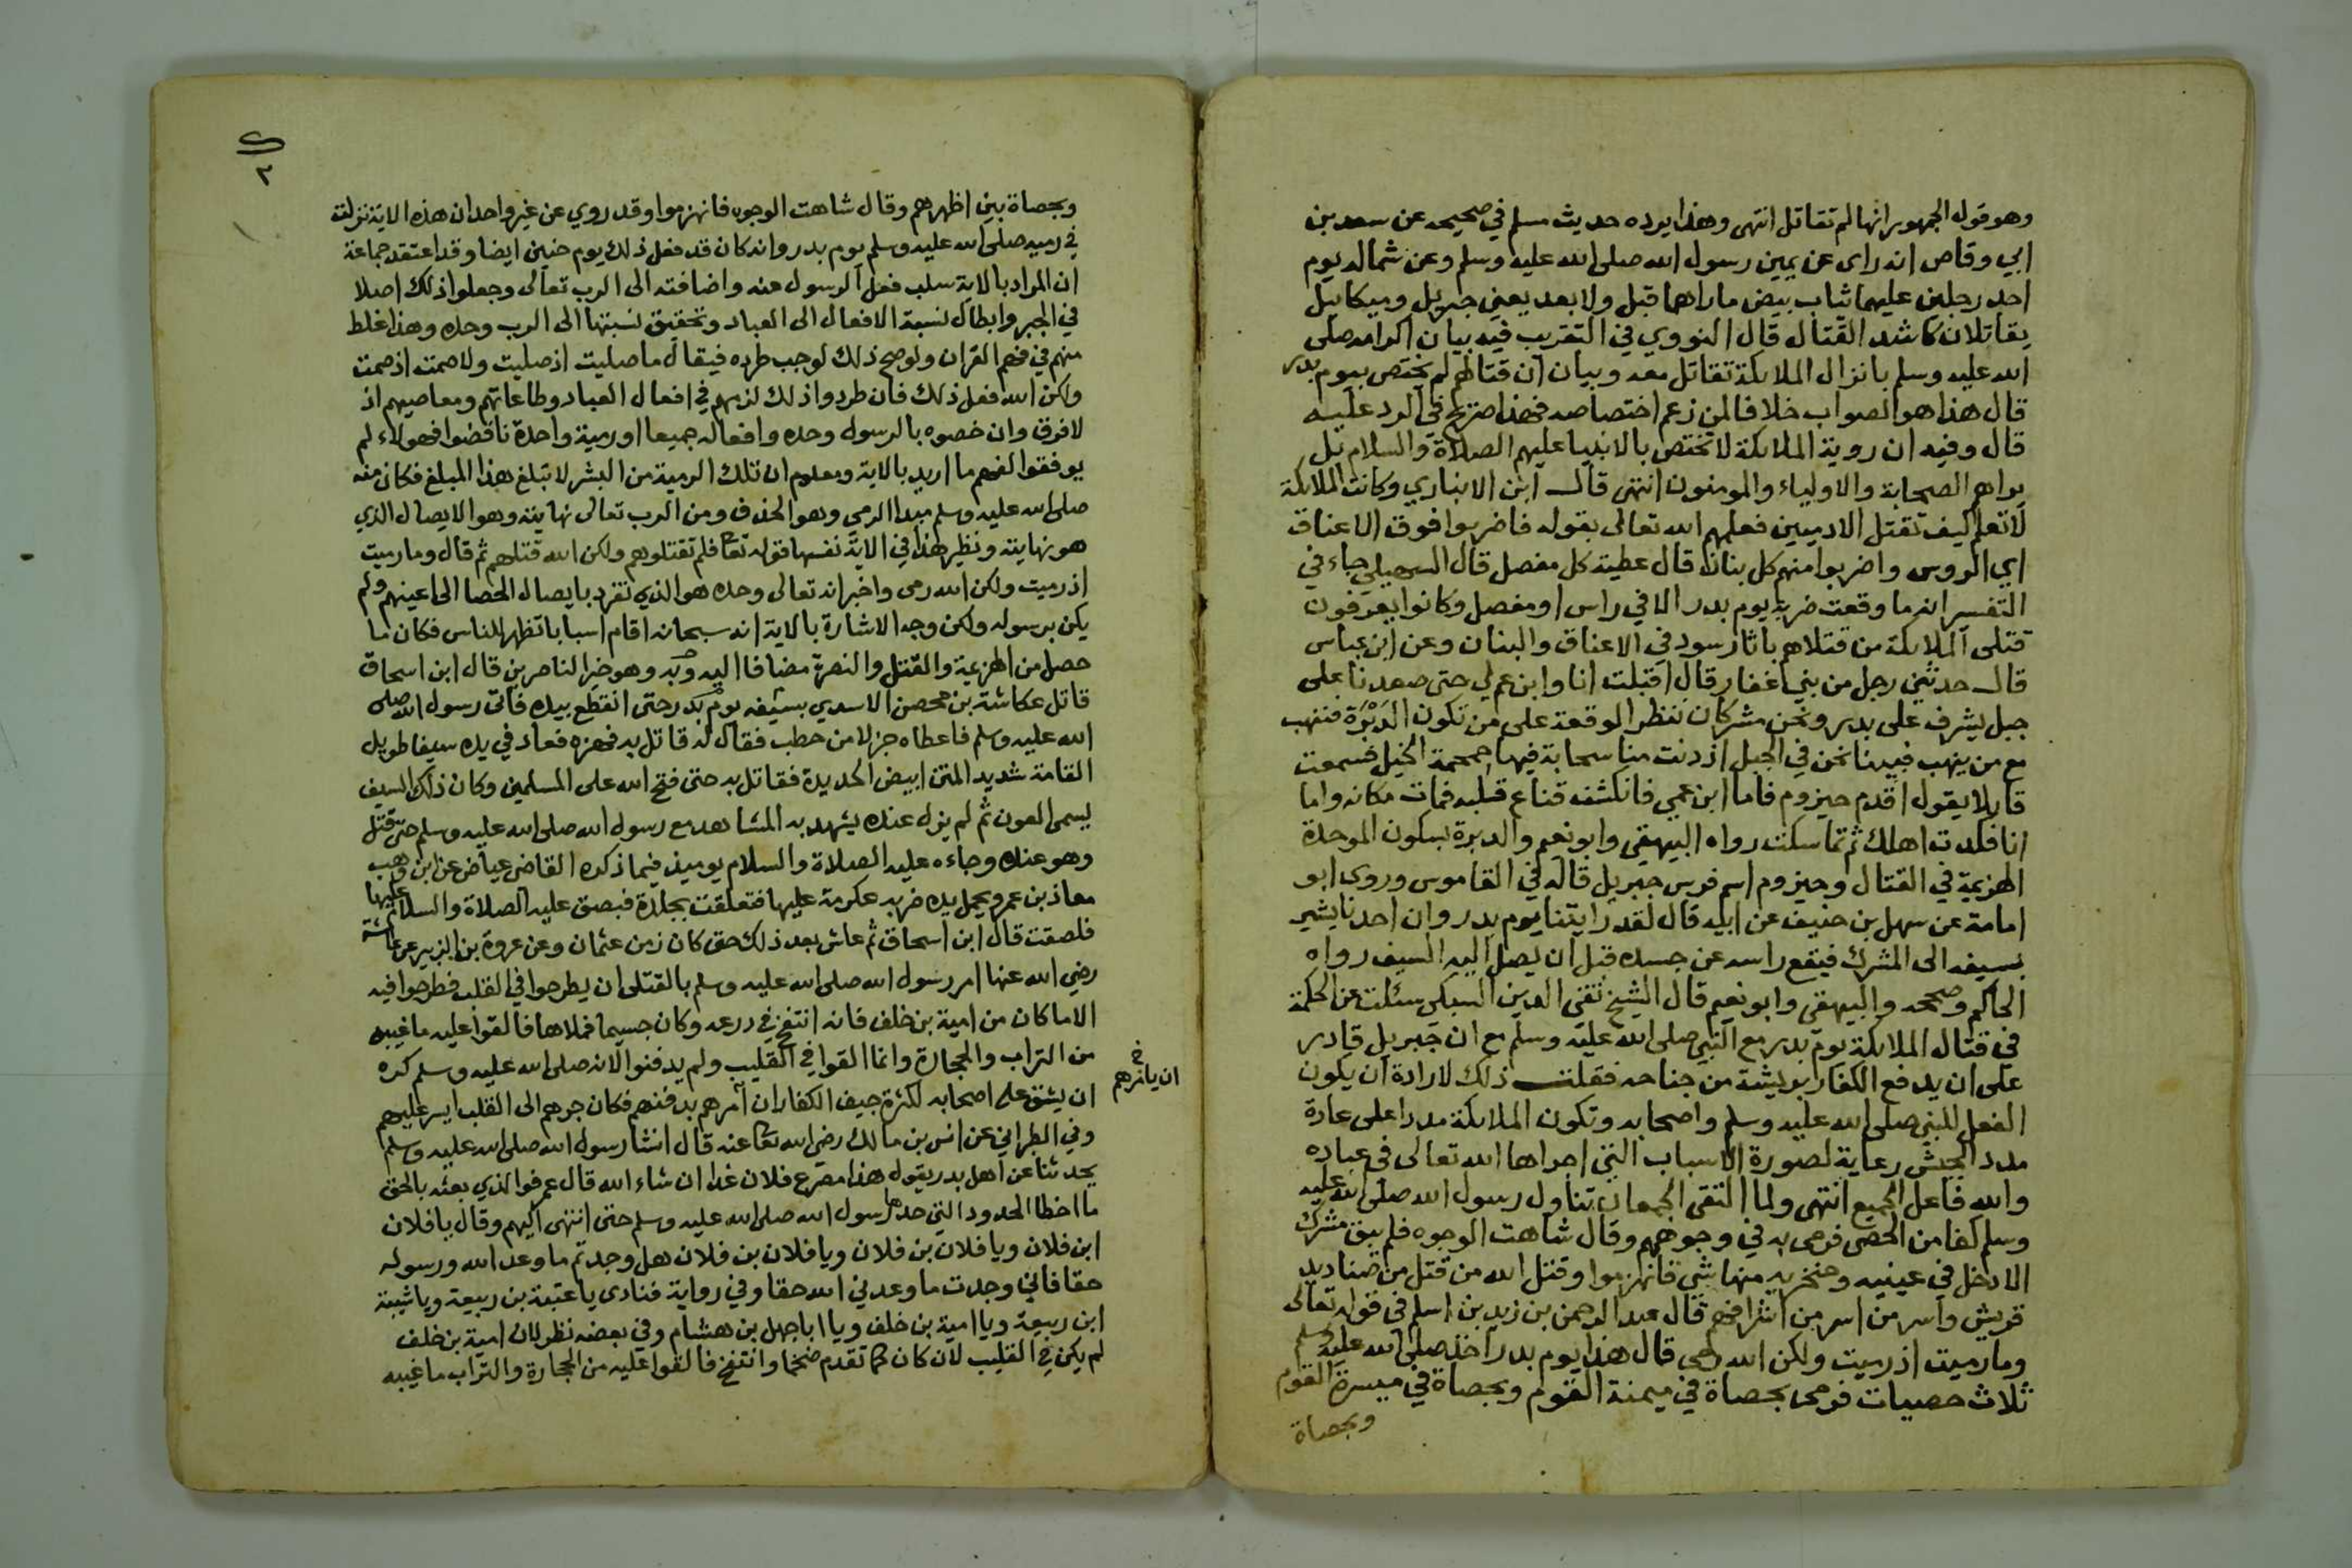 وهو قول الجمهور انها لم تقاتل انتهى وهذا يرده حديث مسلم في صحيحه عن سعد بن
ابي وقاص انه راى عن يمين رسول الله صلى الله عليه وسلم وعن شماله يوم
احد رجلين عليهما ثياب بيض ما راهما قبل ولا بعد يعني جبريل وميكائيل
يقاتلان كاشد القتال قال النووي في التقريب فيه بيان اكرامه صلى
الله عليه وسلم بانزال الملايكة تقاتل معه وبيان ان قتالهم لم يختص بيوم بدر
قال هذا هو الصواب خلافا لمن زعم اختصاصه فهذا صريح في الرد عليه
قال وفيه ان روية الملايكة لا تختص بالانبيا عليهم الصلاة والسلام بل
يراهم الصحابة والاولياء والمومنون انتهى قال ابن الانباري وكانت الملايكة
لا تعلم كيف تقتل الادميين فعلمهم الله تعالى بقوله فاضربوا فوق الاعناق
اي الروس واضربوا منهم كل بنان قال عطية كل مفصل قال السهيلي جاء في
التفسير انه ما وقعت ضربة يوم بدر الا في راس او مفصل وكانوا يعرفون
قتلى الملايكة من قتلاهم باثار سود في الاعناق والبنان وعن ابن عباس
قال حدثني رجل من بني غفار قال اقبلت انا وابن عم لي حتى صعدنا على
جبل يشرف على بدر ونحن مشركان ننظر الوقعة على من تكون الدَبْرَة فننهب
مع من ينهب فبينا نحن في الجبل اذ دنت منا سحابة فيها حمحمة الخيل فسمعت
قايلا يقول اقدم حيزوم فاما ابن عمي فانكشف قناع قلبه فمات مكانه واما
انا فكدت اهلك ثم تماسكت رواه البيهقي وابو نعيم والدبرة بسكون الموحدة
الهزيمة في القتال وحيزوم اسم فرس جبريل قاله في القاموس وروى ابو
امامة عن سهل بن حنيف عن ابيه قال لقد رايتنا يوم بدر وان احدنا يشير
بسيفه الى المشرك فيقع راسه عن جسده قبل ان يصل اليه السيف رواه
الحاكم وصححه والبيهقي وابو نعيم قال الشيخ تقي الدين السبكي سئلت عن الحكمة
في قتال الملايكة يوم بدر مع النبي صلى الله عليه وسلم مع ان جبريل قادر
على ان يدفع الكفار بريشة من جناحه فقلت ذلك لارادة ان يكون
الفعل للنبي صلى الله عليه وسلم واصحابه وتكون الملايكة مددا على عادة
مدد الجيش رعاية لصورة الاسباب التي اجراها الله تعالى في عباده
والله فاعل الجميع انتهى ولما التقى الجمعان تناول رسول الله صلى الله عليه
وسلم كفا من الحصى فرمى به في وجوههم وقال شاهت الوجوه فلم يبق مشرك
الا دخل في عينيه ومنخريه منها شي فانهزموا وقتل الله من قتل من صناديد
قريش واسر من اسر من اشرافهم قال عبد الرحمن بن زيد بن اسلم في قوله تعالى
وما رميت اذ رميت ولكن الله رمى قال هذا يوم بدر اخذ صلى الله عليه وسلم
ثلاث حصيات فرمى بحصاة في ميمنة القوم وبحصاة في ميسرة القوم
وبحصاة
٢
وبحصاة بين اظهرهم وقال شاهت الوجوه فانهزموا وقد روي عن غير واحد ان هذه الاية نزلت
في رميه صلى الله عليه وسلم يوم بدر وانه كان قد فعل ذلك يوم حنين ايضا وقد اعتقد جماعة
ان المراد بالاية سلب فعل الرسول عنه واضافته الى الرب تعالى وجعلوا ذلك اصلا
في الجبر وابطال نسبة الافعال الى العباد وتحقيق نسبتها الى الرب وحده وهذا غلط
منهم في فهم القران ولو صح ذلك لوجب طرده فيقال ما صليت اذ صليت ولا صمت اذ صمت
ولكن الله فعل ذلك فان طردوا ذلك لزمهم في افعال العباد وطاعاتهم ومعاصيهم اذ
لا فرق وان خصوه بالرسول وحده وافعاله جميعا او رمية واحدة ناقضوا فهولاء لم
يوفقوا لفهم ما اريد بالاية ومعلوم ان تلك الرمية من البشر لا تبلغ هذا المبلغ فكان منه
صلى الله عليه وسلم مبدا الرمي وهو الحذف ومن الرب تعالى نهايته وهو الايصال الذي
هو نهايته ونظير هذا في الاية نفسها قوله تعا فلم تقتلوهم ولكن الله قتلهم ثم قال وما رميت
اذ رميت ولكن الله رمى واخبر انه تعالى وحده هو الذي تفرد بايصال الحصا الى اعينهم ولم
يكن برسوله ولكن وجه الاشارة بالاية انه سبحانه اقام اسبابا تظهر للناس فكان ما
حصل من الهزيمة والقتل والنصرة مضافا اليه وبه وهو خير الناصرين قال ابن اسحاق
قاتل عكاشة بن محصن الاسدي بسيفه يوم بدر حتى انقطع بيده فاتى رسول الله صلى
الله عليه وسلم فاعطاه جزلا من حطب فقال له قاتل به فهزه فعاد في يده سيفا طويل
القامة شديد المتن ابيض الحديدة فقاتل به حتى فتح الله على المسلمين وكان ذلك السيف
يسمى العون ثم لم يزل عنده يشهد به المشاهد مع رسول الله صلى الله عليه وسلم حتى قتل
وهو عنده وجاءه عليه الصلاة والسلام يوميذ فيما ذكره القاضي عياض عن ابن وهب
معاذ بن عمرو يحمل يده ضربه عكرمة عليها فتعلقت بجلدة فبصق عليه الصلاة والسلام عليها
فلصقت قال ابن اسحاق ثم عاش بعد ذلك حتى كان زمن عثمان وعن عروة بن الزبير عن عائشة
رضي الله عنها امر رسول الله صلى الله عليه وسلم بالقتلى ان يطرحوا في القلب فطرحوا فيه
الا ما كان من امية بن خلف فانه انتفخ في درعه وكان جسيما فملاها فالقوا عليه ما غيبه
من التراب والحجارة وانما القوا في القليب ولم يدفنوا لانه صلى الله عليه وسلم كره
ان يشق على اصحابه لكثرة جيف الكفار ان آمرهم بدفنهم فكان جرهم الى القلب ايسر عليهم
خ
ان يامرهم
وفي الطبراني عن انس بن مالك رضي الله تعا عنه قال انشا رسول الله صلى الله عليه وسلم
يحدثنا عن اهل بدر يقول هذا مصرع فلان غدا ان شاء الله قال عمر فوالذي بعثه بالحق
ما اخطا الحدود التي حدها رسول الله صلى الله عليه وسلم حتى انتهى اليهم وقال يا فلان
ابن فلان ويا فلان بن فلان ويا فلان بن فلان هل وجدتم ما وعد الله ورسوله
حقا فاني وجدت ما وعدني الله حقا وفي رواية فنادى يا عتبة بن ربيعة ويا شيبة
ابن ربيعة ويا امية بن خلف ويا ابا جهل بن هشام وفي بعضه نظر لان امية بن خلف
لم يكن في القليب لان كان كما تقدم ضخما وانتفخ فالقوا عليه من الحجارة والتراب ما غيبه